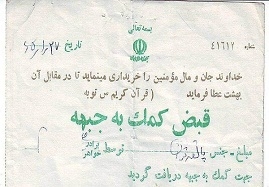 بسمه تعالی
شماره ۴۱۶۱۲
تاریخ
خداوند جان و مال مؤمنین را خریداری مینماید تا در مقابل آن
بهشت عطا فرماید ( قرآن کریم س توبه
قبض کمک به جبهه
مبلغ - جنس توسط برادر خواهر
جهت کمک به جبهه دریافت گردید